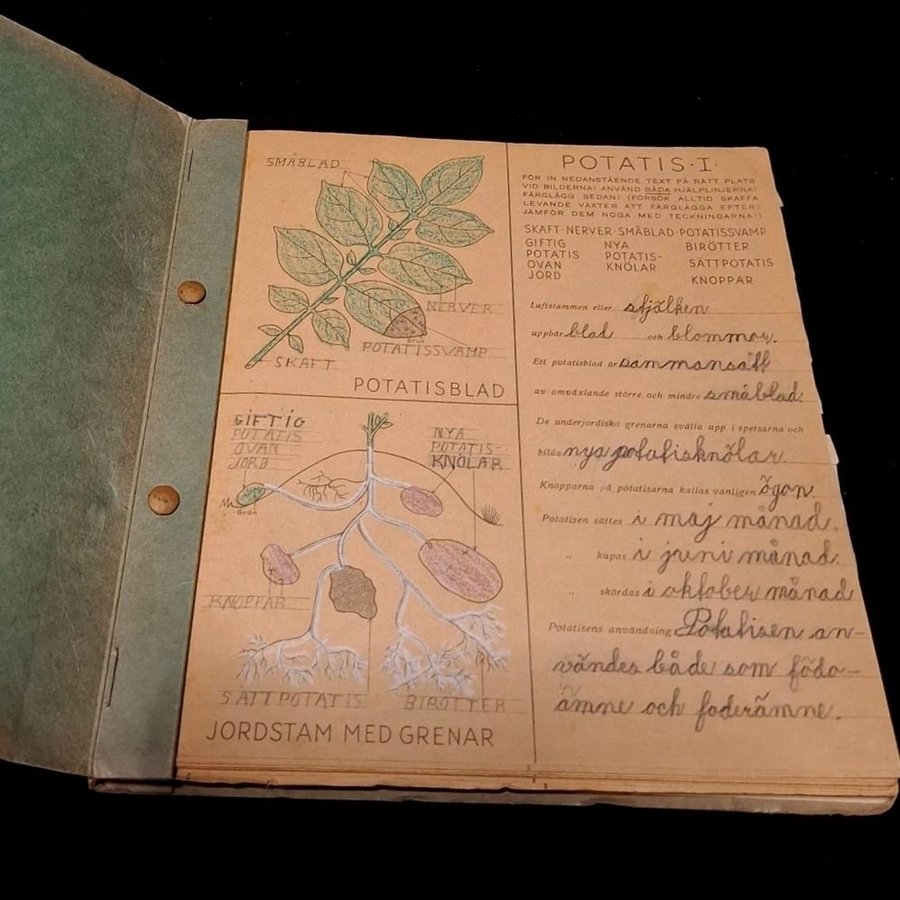 SMÅBLAD
NERVER
Brun
POTATISSVAMP
SKAFT
POTATISBLAD
GIFTIG
POTATIS
OVAN
JORD
NYA
POTATIS-
KNÖLAR
Grön
KNOPPAR
SÄTTPOTATIS
BIRÖTTER
JORDSTAM MED GRENAR
POTATIS·I·
FÖR IN NEDANSTÅENDE TEXT PÅ RÄTT PLATS
VID BILDERNA! ANVÄND BÅDA HJÄLPLINJERNA!
FÄRGLÄGG SEDAN! (FÖRSÖK ALLTID SKAFFA
LEVANDE VÄXTER ATT FÄRGLÄGGA EFTER!
JÄMFÖR DEM NOGA MED TECKNINGARNA!)
SKAFT·NERVER·SMÅBLAD·POTATISSVAMP
GIFTIG NYA BIRÖTTER
POTATIS POTATIS- SÄTTPOTATIS
OVAN KNÖLAR
JORD KNOPPAR
Luftstammen eller stjälken
uppbär blad och blommor.
Ett potatisblad är sammansatt
av omväxlande större och mindre småblad.
De underjordiska grenarna svälla upp i spetsarna och
bilda nya potatisknölar.
Knopparna på potatisarna kallas vanligen ögon.
Potatisen sättes i maj månad.
„ kupas i juni månad.
„ skördas i oktober månad
Potatisens användning Potatisen an-
vändes både som födo-
ämne och foderämne.